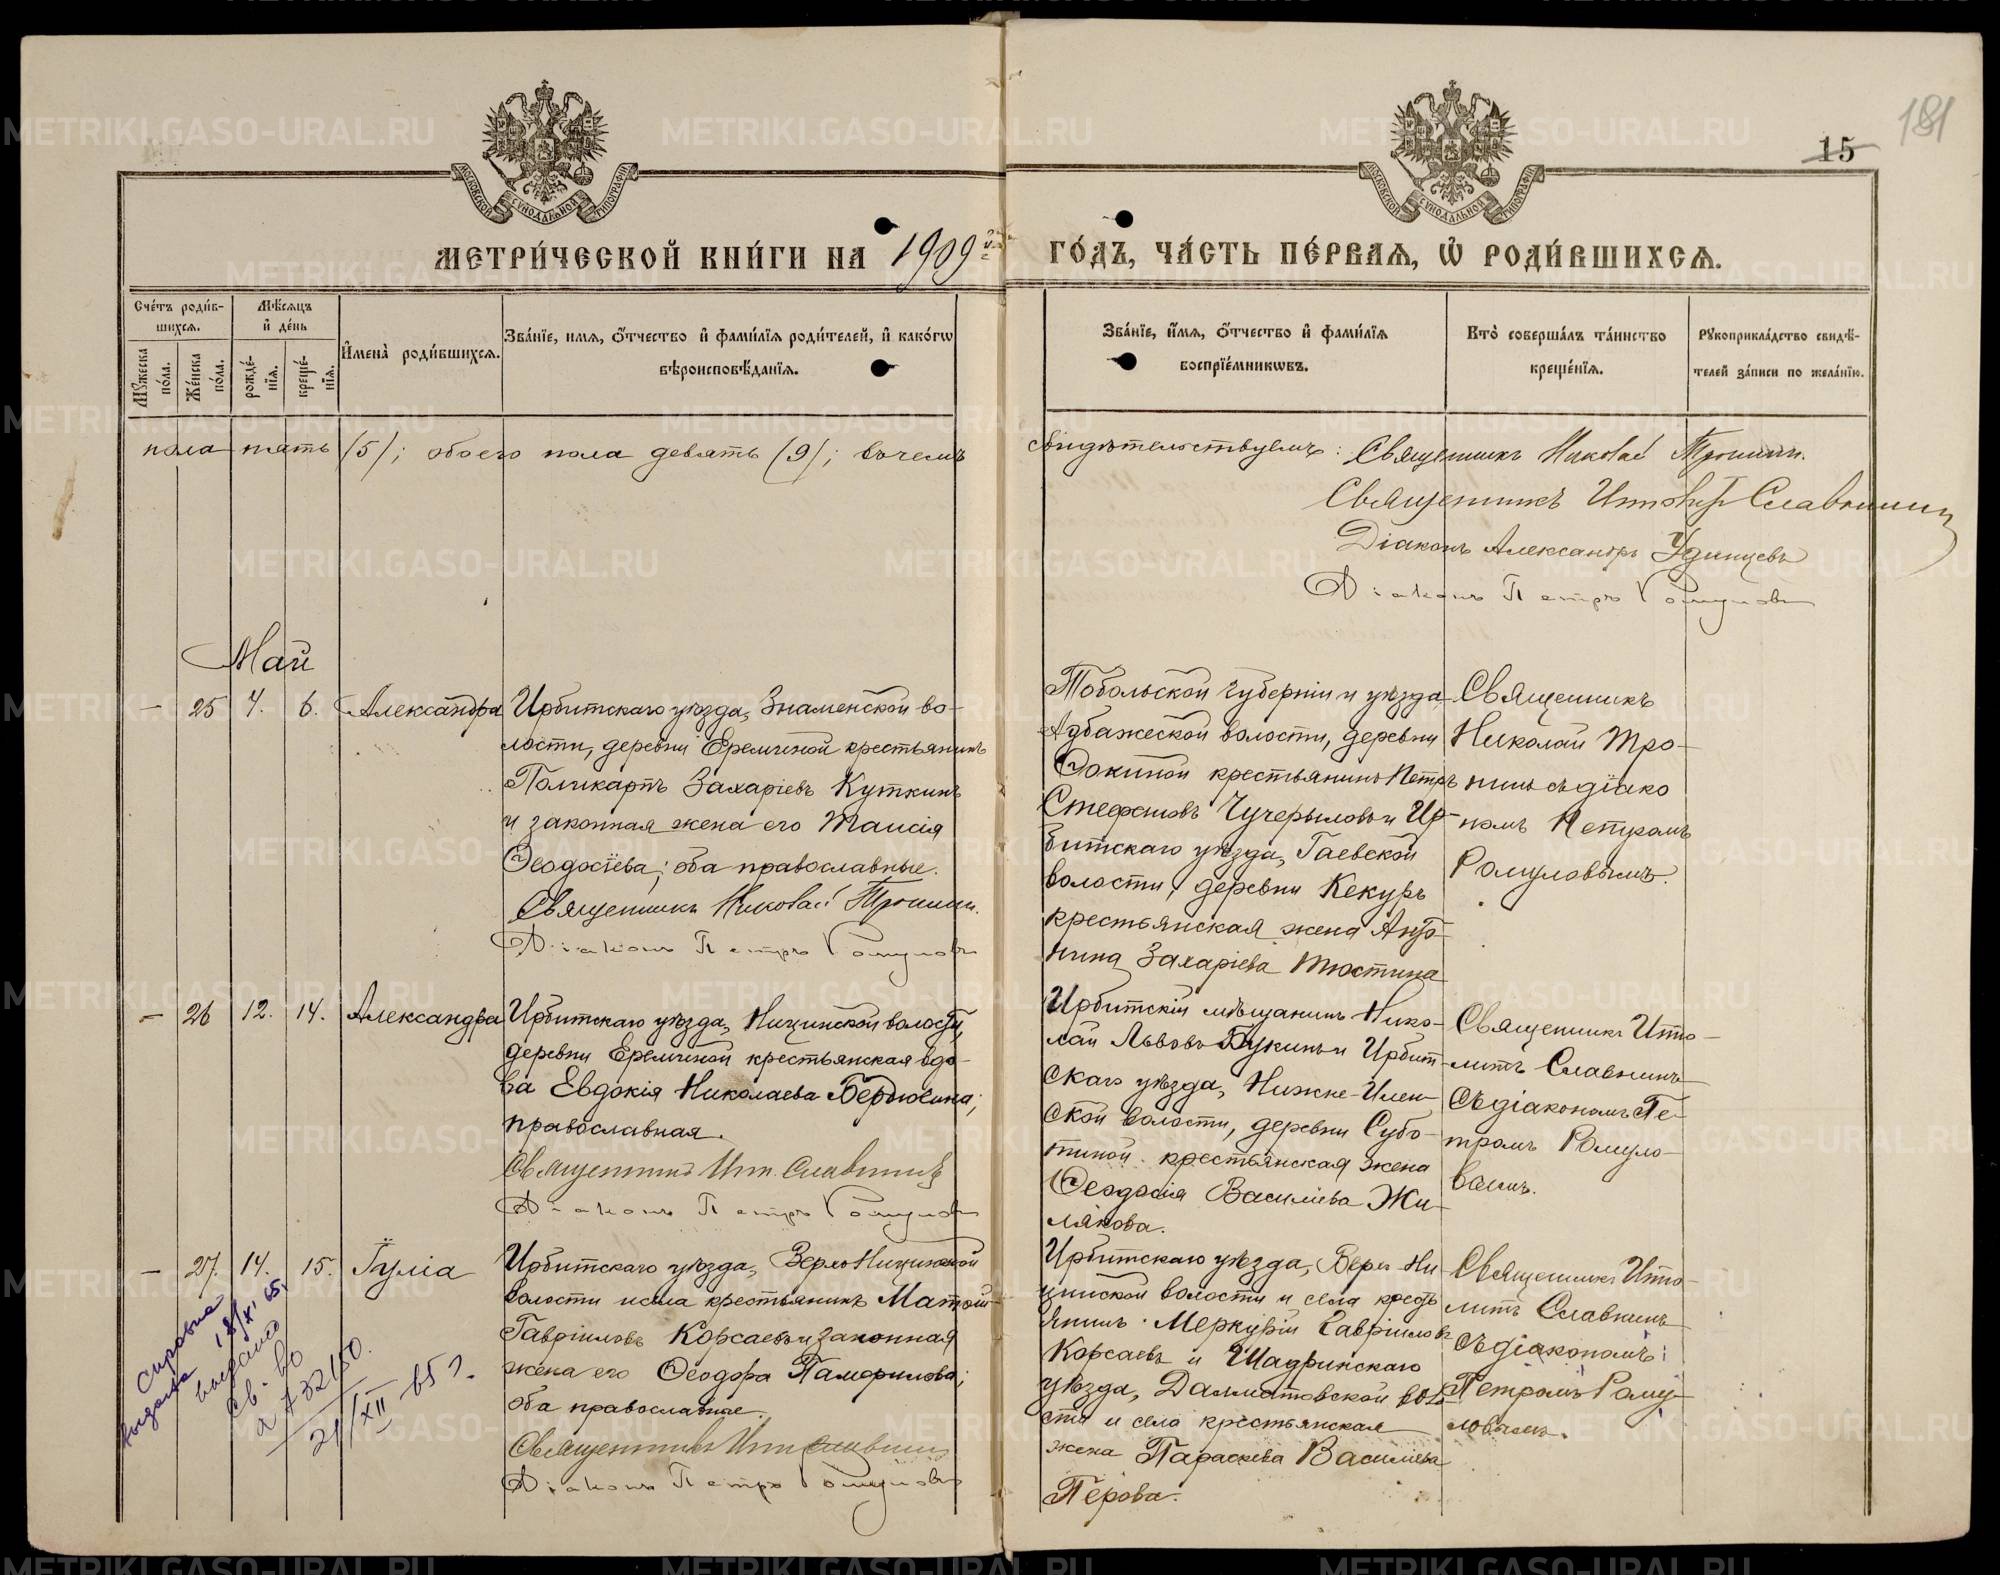 181
15
МОСКОВСКОЙ СѴНОДАЛЬНОЙ ТИПОГРАФІИ
МОСКОВСКОЙ СѴНОДАЛЬНОЙ ТИПОГРАФІИ
МЕТРИ́ЧЕСКОЙ КНИ́ГИ НА 1909й
ГО́ДЪ, ЧА́СТЬ ПЕ́РВАЯ, Ѡ҆ РОДИ́ВШИХСѦ.
Сче́тъ роди́в-
шихсѧ.
Мѣ́сѧцъ
и҆ де́нь
Мꙋ́жеска по́ла.
Же́нска по́ла.
рожде́-
нїѧ.
креще́-
нїѧ.
И҆мена̀ роди́вшихсѧ.
Зва́нїе, имѧ, ѻ҆́тчество и҆ фами́лїѧ роди́телей, и҆ како́гѡ
вѣроисповѣ́данїѧ.
Зва́нїе, и҆́мѧ, ѻ҆́тчество и҆ фами́лїѧ
воспрїе́мникѡвъ.
Кто̀ соверша́лъ та́инство
креще́нїѧ.
Рꙋкоприкла́дство свидѣ́-
телей за́писи по жела́нїю.
пола пять (5); обоего пола девять (9); въ чемъ
свидѣтельствуемъ: Священникъ Николай Тронинъ.
Священникъ Славнинъ
Діаконъ Александръ Удинцевъ
Діаконъ Петръ Ромуловъ
Май
— 25 4. 6. Александра
Ирбитскаго уѣзда, Знаменской во-
лости, деревни Ереминой крестьянинъ
Поликарпъ Захаріевъ Куткинъ
и законная жена его Таисія
Ѳеодосіева; оба православные.
Священникъ Николай Тронинъ.
Діаконъ Петръ Ромуловъ
Тобольской губерніи и уѣзда,
волости, деревни
крестьянинъ Петръ
Стефановъ Чучерыловъ и Ир-
битскаго уѣзда, Гаевской
волости, деревни Кекуръ
крестьянская жена Анто-
нина Захаріева Тюстина
Священникъ
Николай Тро-
нинъ съ діако
номъ Петромъ
Ромуловымъ.
— 26 12. 14. Александра
Ирбитскаго уѣзда, Ницинской волости,
деревни Еремичной крестьянская вдо-
ва Евдокія Николаева Бердюгина;
православная.
Священникъ Ип. Славнинъ
Діаконъ Петръ Ромуловъ
Ирбитскій мѣщанинъ Нико-
лай Львовъ Букинъ и Ирбит-
скаго уѣзда, Нижне-Илен-
ской волости, деревни Субо-
тиной крестьянская жена
Ѳеодосія Василіева Жи-
лякова.
Священникъ Иппо-
литъ Славнинъ
съ діакономъ Пе-
тромъ Ромуло-
вымъ.
— 27. 14. 15. Іулія
Ирбитскаго уѣзда, Верхо-Ницинской
волости и села крестьянинъ
Гавріиловъ Корсаевъ и законная
жена его Ѳеодора Памфилова;
оба православные.
Священникъ Ип. Славнинъ
Діаконъ Петръ Ромуловъ
Ирбитскаго уѣзда, Верхо-Ни-
цинской волости и села кресть-
янинъ Меркурій Гавріиловъ
Корсаевъ и Шадринскаго
уѣзда, Далматовской воло-
сти и села крестьянская
жена Параскева Василіева
Перова.
Священникъ Иппо-
литъ Славнинъ
съ діакономъ
Петромъ Рому-
ловымъ.
Справка
выдана 18/XI 65.
выдано
св-во
21/XII-65 г.